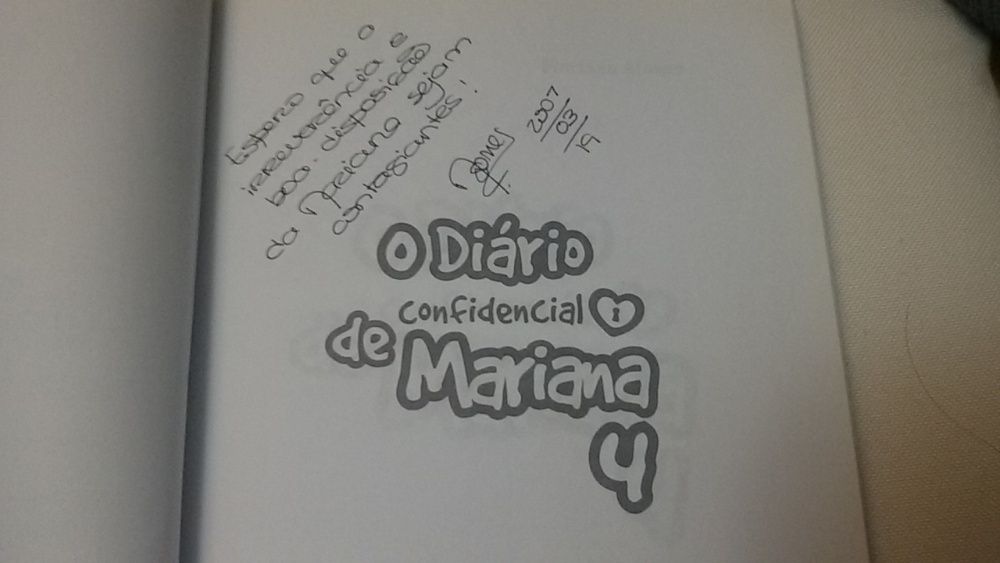 Espero que o
irreverência e
boa disposição
da Mariana sejam
contagiantes!
2007
/03
/19
O Diário
confidencial
de Mariana
4